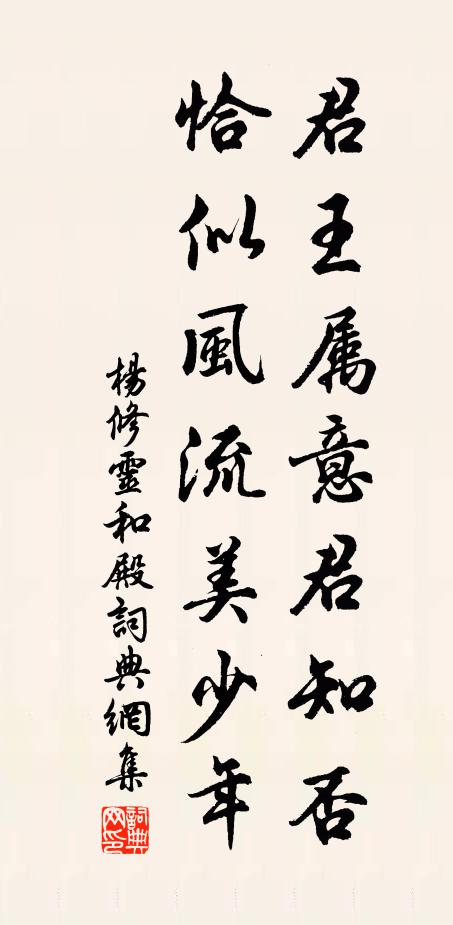 君王属意君知否
恰似風流美少年
楊修靈和殿詞典網集
詞典网印